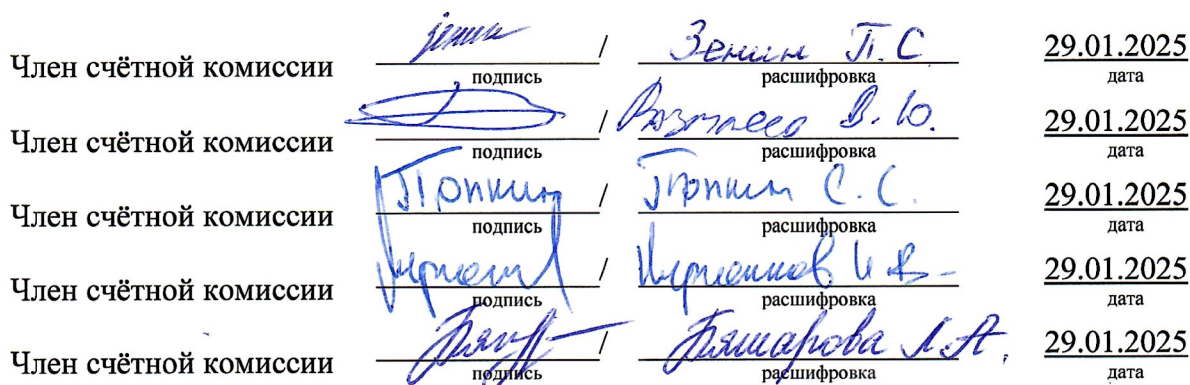 Член счётной комиссии / Зенин П.С 29.01.2025
подпись расшифровка дата
Член счётной комиссии / В.Ю. 29.01.2025
подпись расшифровка дата
Член счётной комиссии Тюпкин / Тюпкин С.С. 29.01.2025
подпись расшифровка дата
Член счётной комиссии / И.В. 29.01.2025
подпись расшифровка дата
Член счётной комиссии / Бяшарова Л.А. 29.01.2025
подпись расшифровка дата